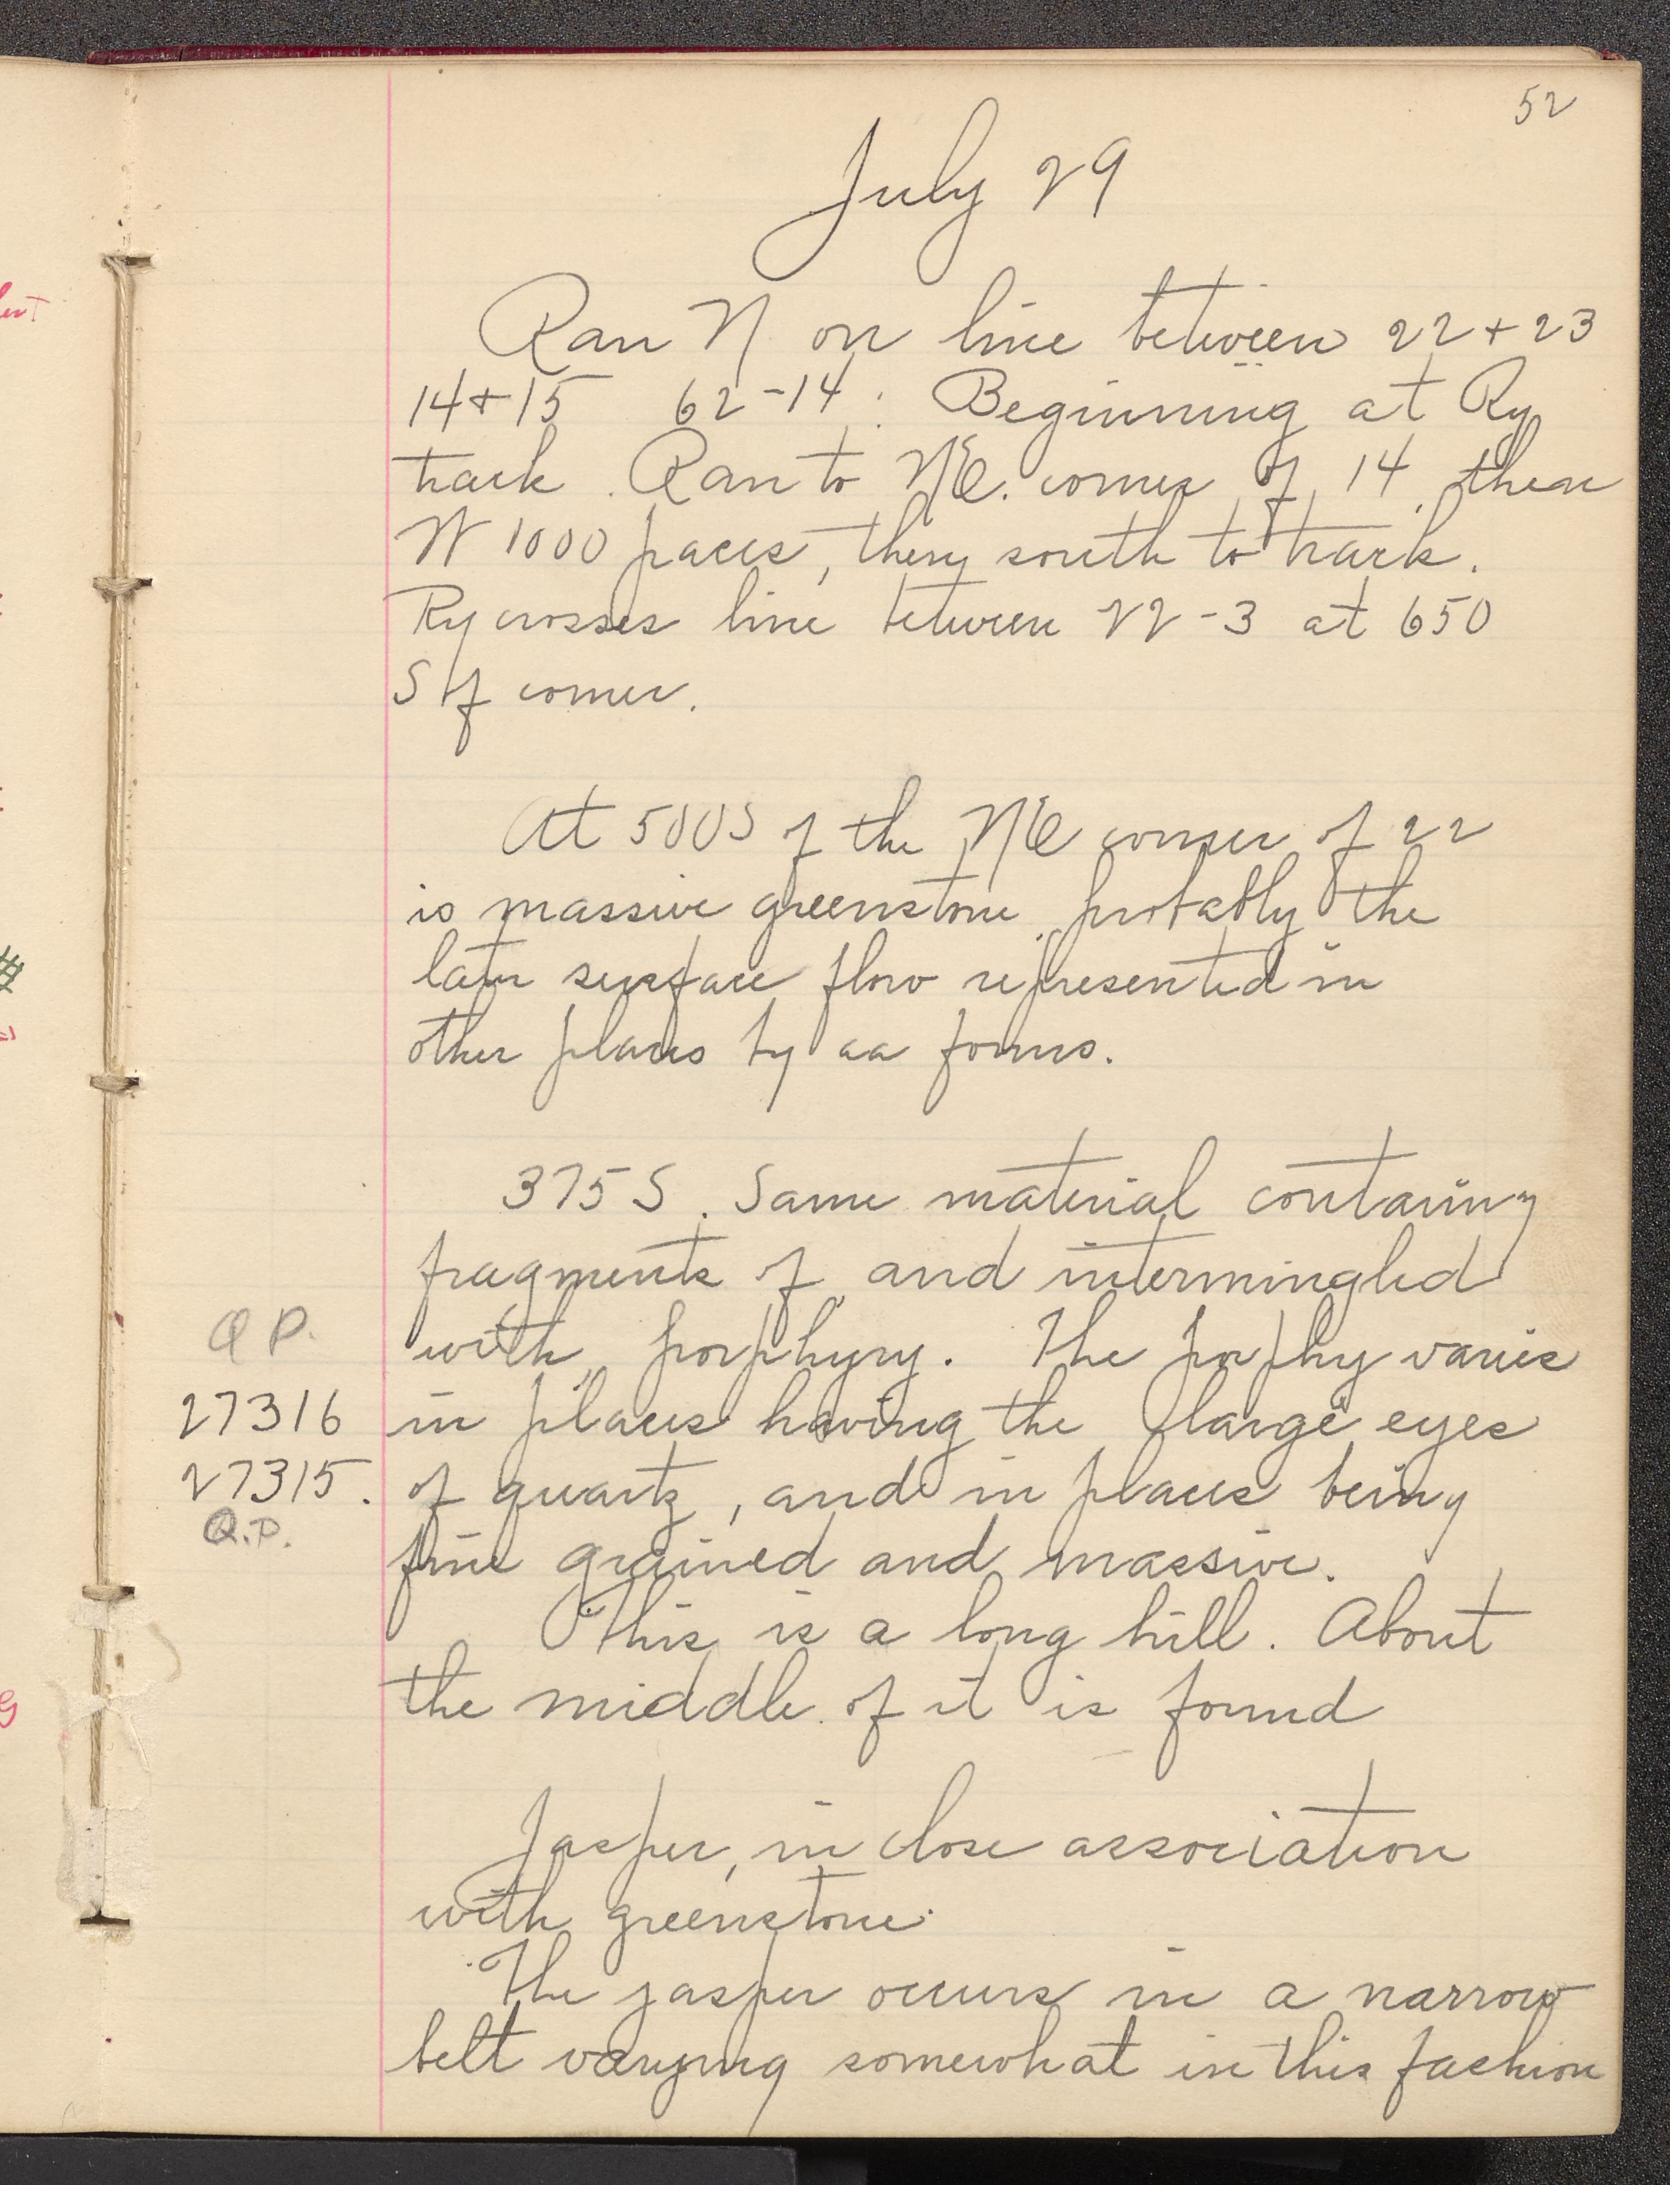 52
July 29
Ran N on line between 22 + 23
14 + 15 62-14. Beginning at Ry
track. Ran to NE. corner of 14, then
W 1000 paces, then south to track.
Ry crosses line between 22-3 at 650
S of corner.
At 500 S of the NE corner of 22
is massive greenstone, probably the
later surface flow represented in
other places by aa forms.
375 S. Same material containing
fragments of, and intermingled
Q P.
with, porphyry. The porphy varies
27316
in places having the large eyes
27315.
of quartz, and in places being
Q.P.
fine grained and massive.
This is a long hill. About
the middle of it is found
Jasper, in close association
with greenstone.
The jasper occurs in a narrow
belt varying somewhat in this fashion